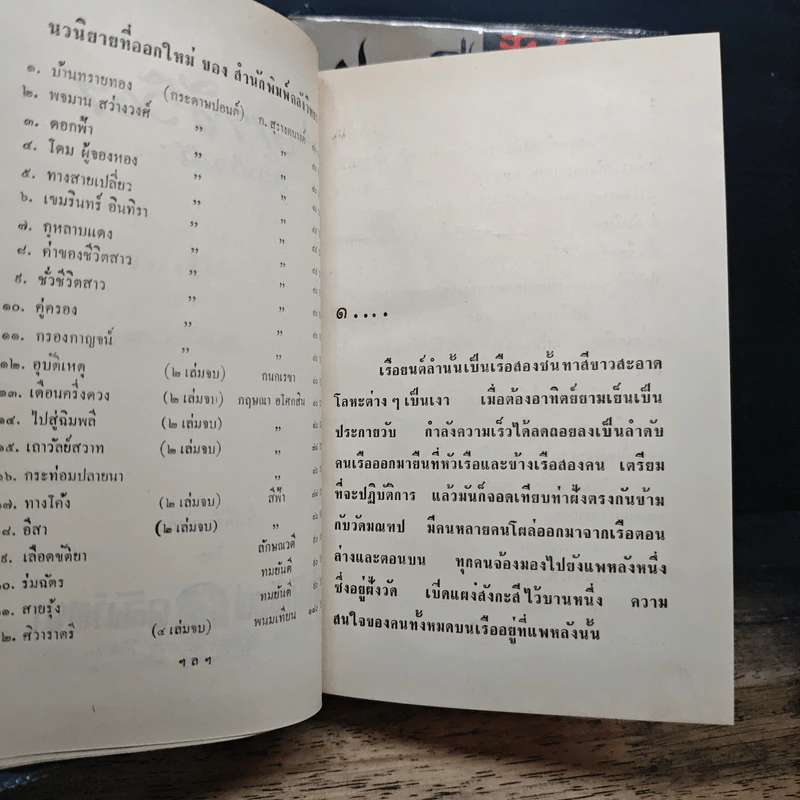 นวนิยายที่ออกใหม่ ของ สำนักพิมพ์คลังวิทยา
๑. บ้านทรายทอง (กระดาษปอนด์) ก. สุรางคนางค์
๒. พจมาน สว่างวงศ์ ” ”
๓. ดอกฟ้า ” ”
๔. โดม ผู้จองหอง ” ”
๕. ทางสายเปลี่ยว ” ”
๖. เขมรินทร์ อินทิรา ” ”
๗. กุหลาบแดง ” ”
๘. ค่าของชีวิตสาว ” ”
๙. ชั่วชีวิตสาว ” ”
๑๐. คู่ครอง ” ”
๑๑. กรองกาญจน์ ” ”
๑๒. อุบัติเหตุ (๒ เล่มจบ) กนกเรขา
๑๓. เดือนครึ่งดวง (๒ เล่มจบ) กฤษณา อโศกสิน
๑๔. ไปสู่ฉิมพลี (๒ เล่มจบ) ”
๑๕. เถาวัลย์สวาท (๒ เล่มจบ) ”
๑๖. กระท่อมปลายนา ”
๑๗. ทางโค้ง (๒ เล่มจบ) สีฟ้า
๘. อีสา (๒ เล่มจบ) ”
๙. เลือดขัติยา ลักษณวดี
๐. ร่มฉัตร ทมยันตี
๑. สายรุ้ง ทมยันตี
๒. ศิวาราตรี (๔ เล่มจบ) พนมเทียน
ฯ ล ฯ
๑....
เรือยนต์ลำนั้นเป็นเรือสองชั้น ทาสีขาวสะอาด
โลหะต่าง ๆ เป็นเงา เมื่อต้องอาทิตย์ยามเย็นเป็น
ประกายวับ กำลังความเร็วได้ลดถอยลงเป็นลำดับ
คนเรือออกมายืนที่หัวเรือและข้างเรือสองคน เตรียม
ที่จะปฏิบัติการ แล้วมันก็จอดเทียบท่าฝั่งตรงกันข้าม
กับวัดมณฑป มีคนหลายคนโผล่ออกมาจากเรือตอน
ล่างและตอนบน ทุกคนจ้องมองไปยังแพหลังหนึ่ง
ซึ่งอยู่ฝั่งวัด เปิดแผงสังกะสีไว้บานหนึ่ง ความ
สนใจของคนทั้งหมดบนเรืออยู่ที่แพหลังนั้น